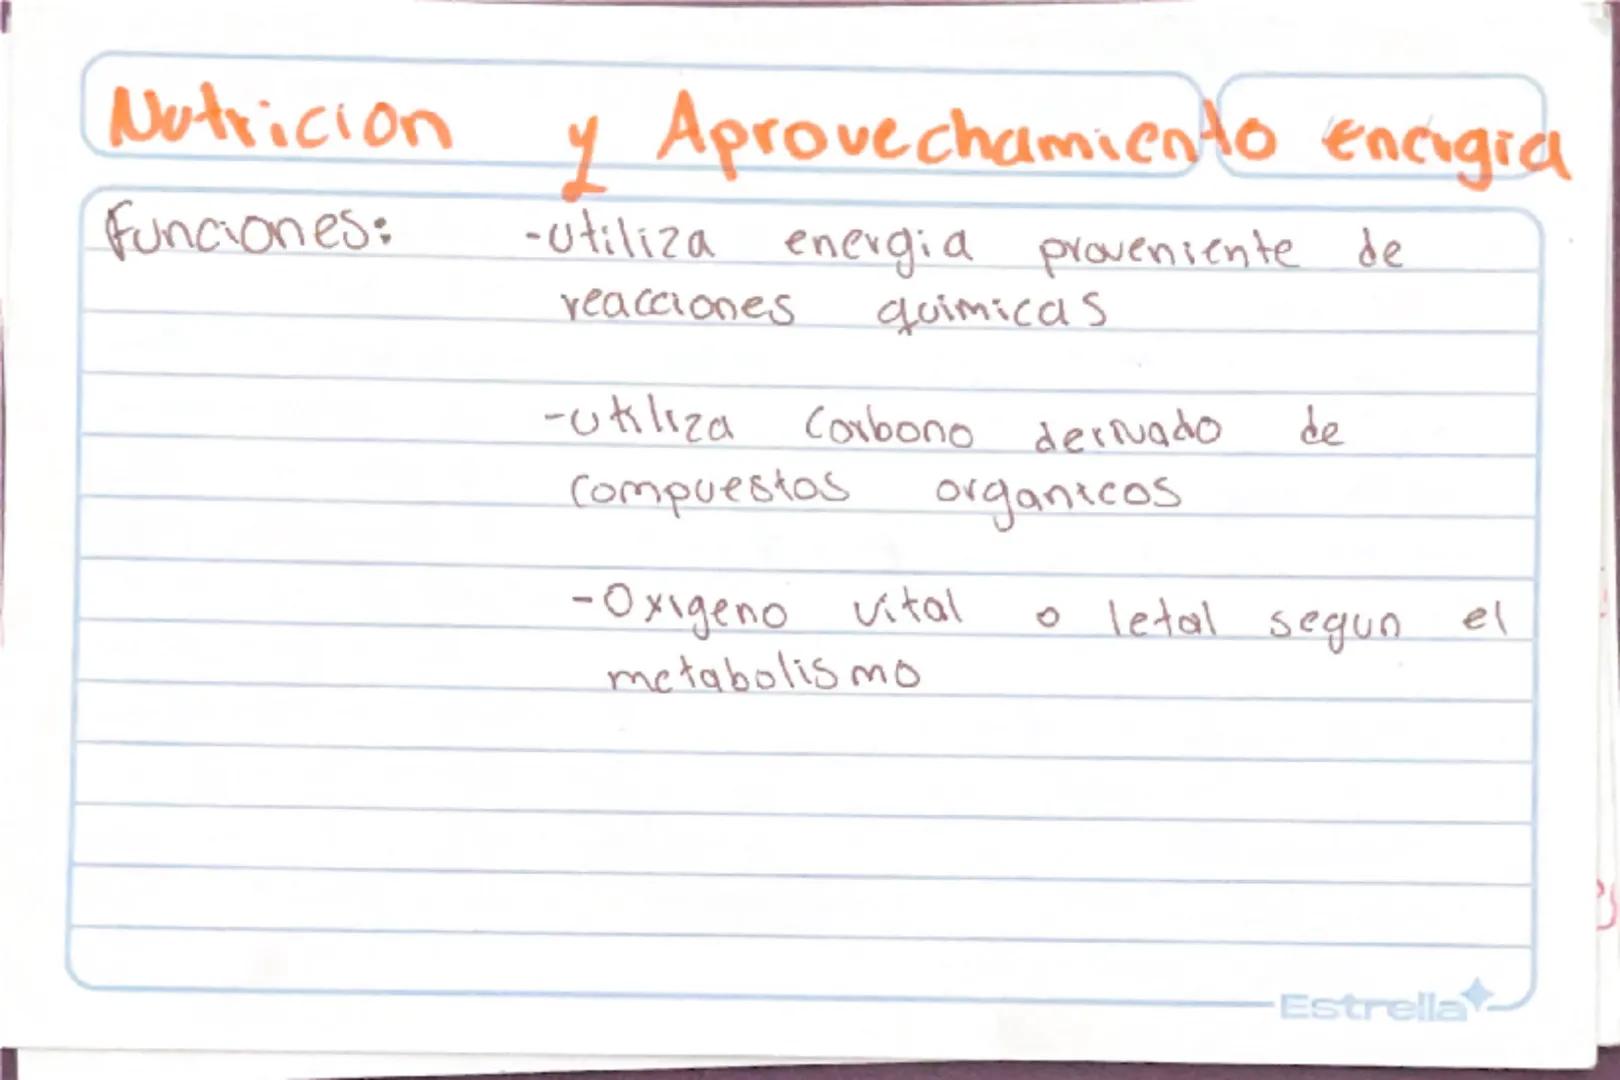 Nutricion y Aprovechamiento energia
Funciones: -utiliza energia proveniente de
reacciones quimicas
-utiliza Carbono derivado de
compuestos organicos
-Oxigeno vital o letal segun el
metabolismo
Estrella